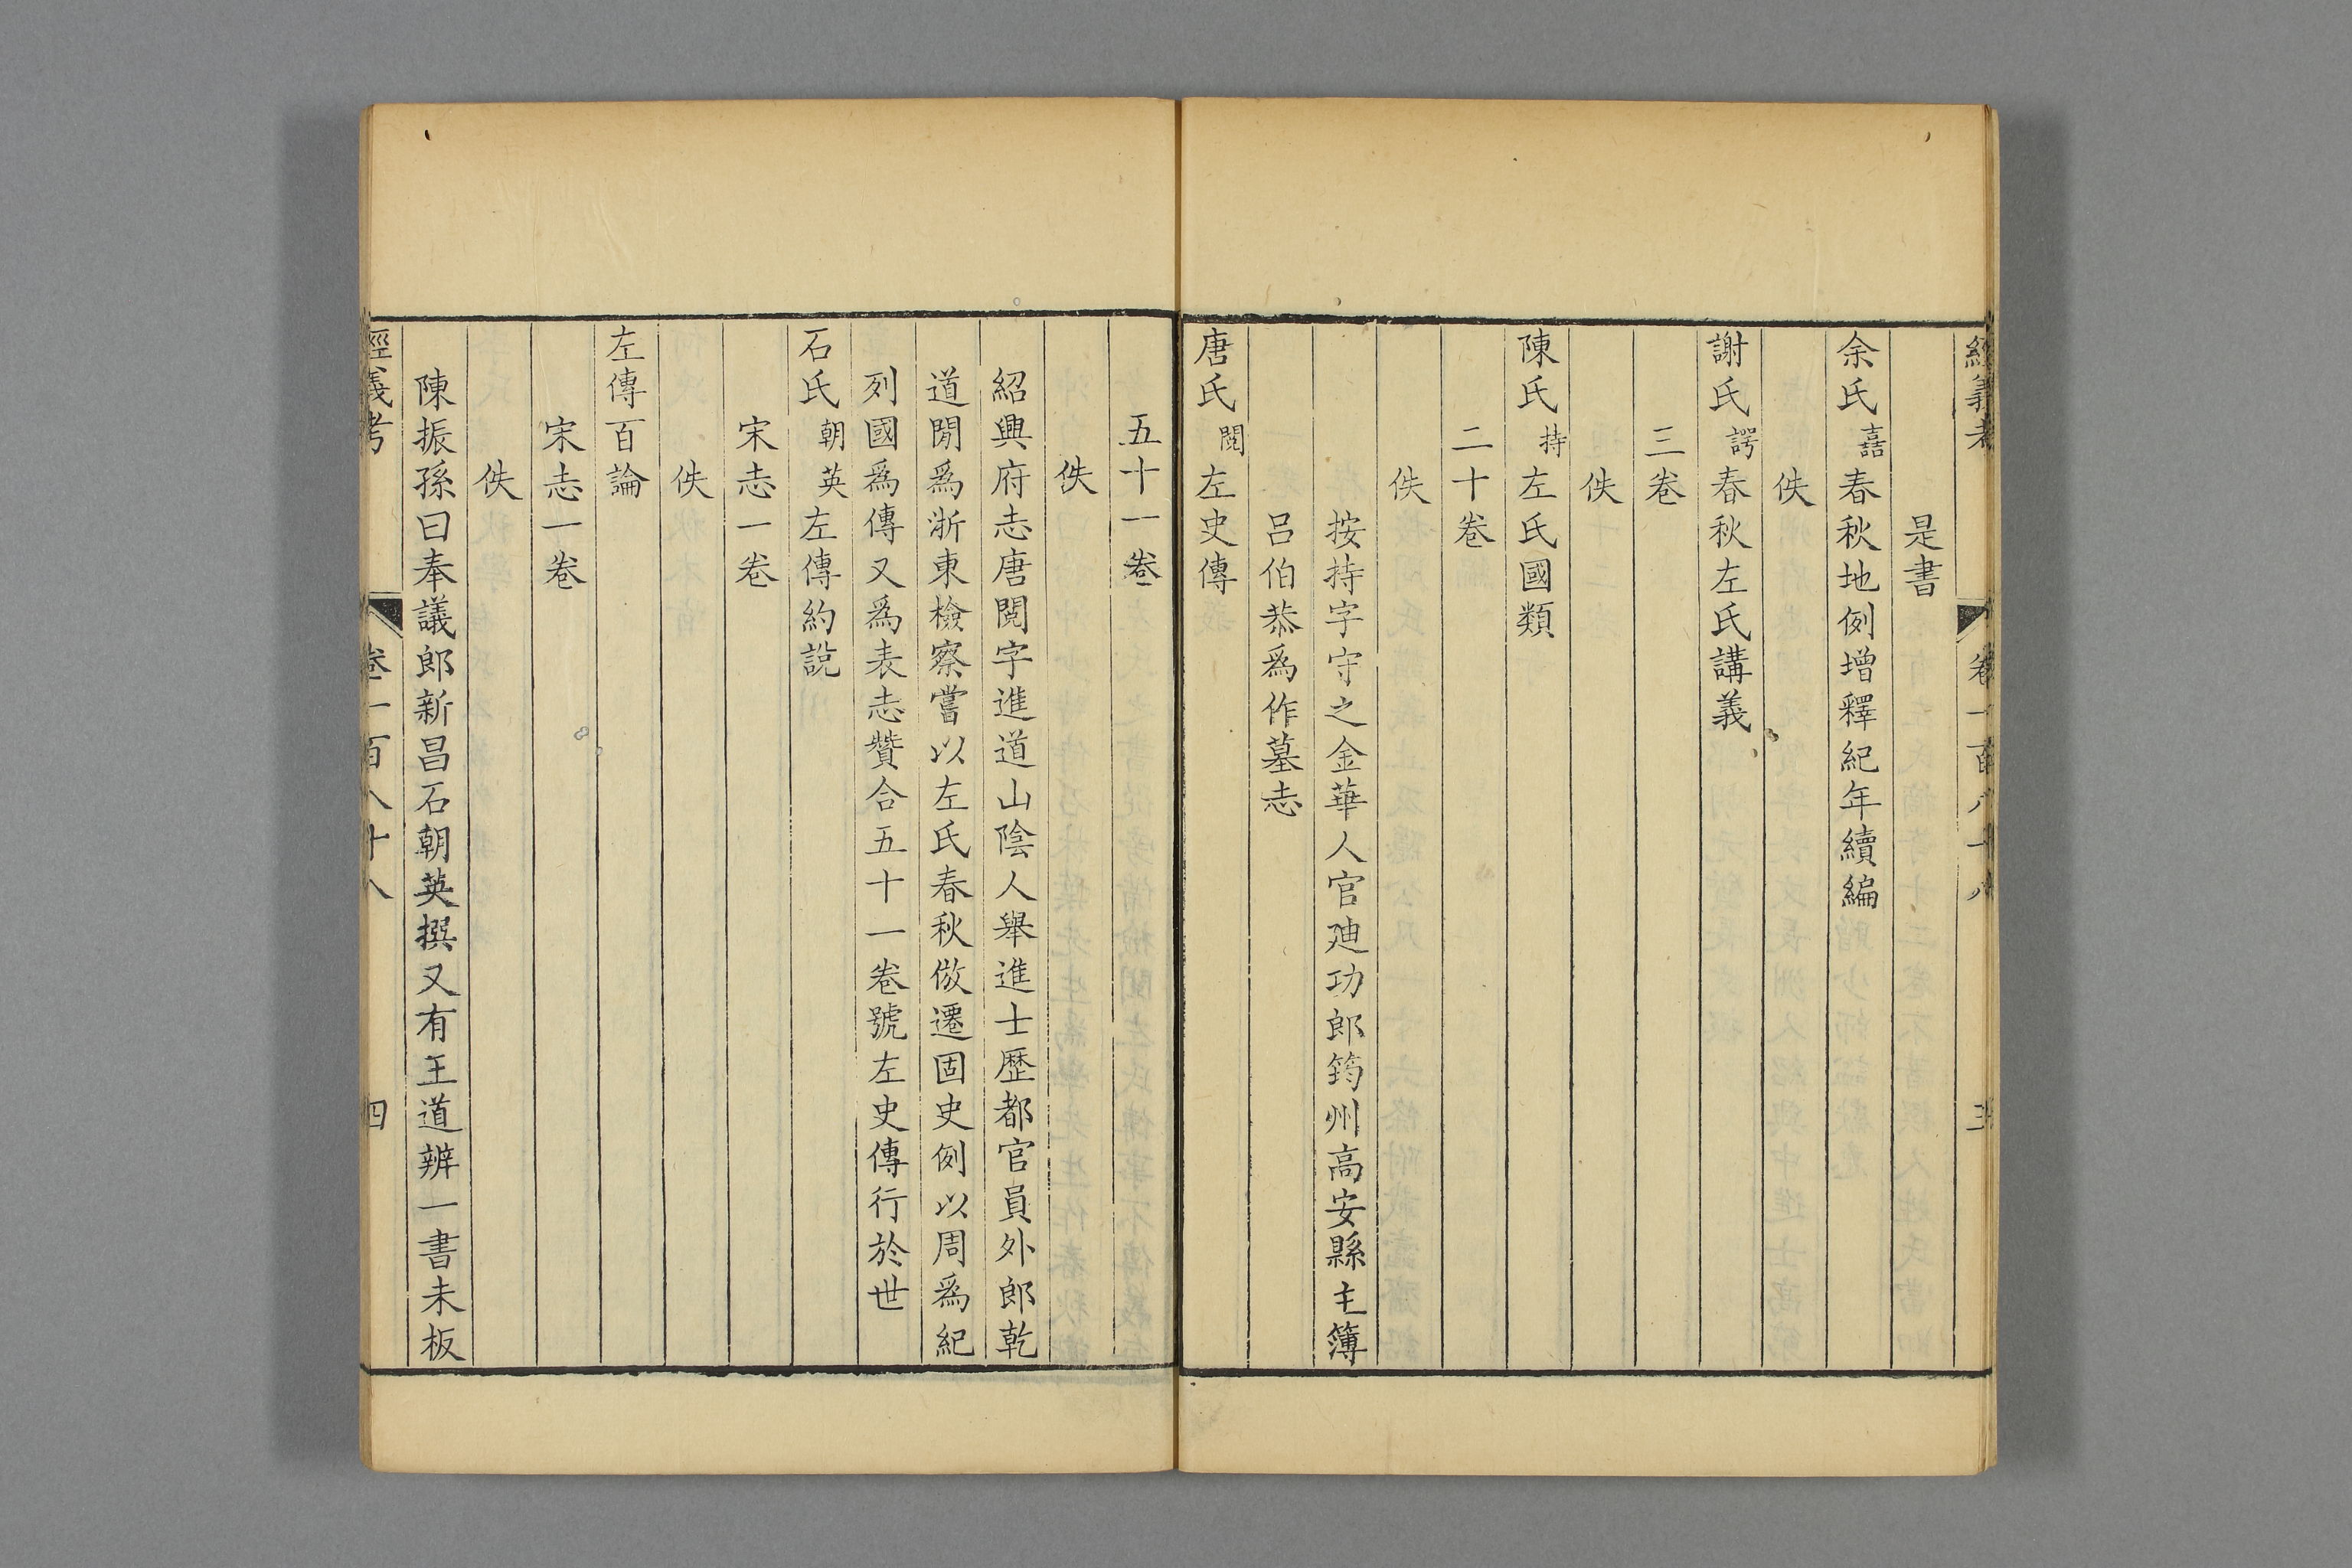 經義考 卷一百八十八 三
是書
余氏嚞春秋地例增釋紀年續編
佚
謝氏諤春秋左氏講義
三卷
佚
陳氏持左氏國類
二十卷
佚
按持字守之金華人官廸功郎筠州高安縣主簿
呂伯恭爲作墓志
唐氏閱左史傳
五十一卷
佚
紹興府志唐閱字進道山陰人舉進士歷都官員外郎乾
道閒爲浙東檢察嘗以左氏春秋倣遷固史例以周爲紀
列國爲傳又爲表志贊合五十一卷號左史傳行於世
石氏朝英左傳約說
宋志一卷
佚
左傳百論
宋志一卷
佚
陳振孫曰奉議郎新昌石朝英撰又有王道辨一書未板
經義考 卷一百八十八 四